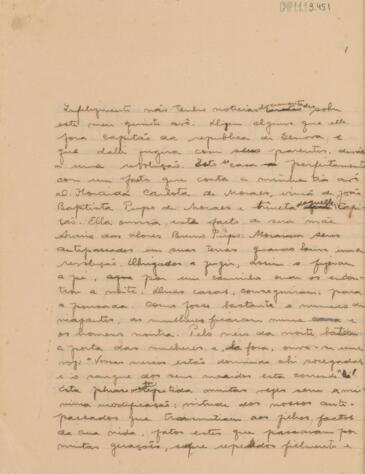 1
Infelizmente não tenho noticias sobre
este meu quinto avô. Dizem alguns que elle
fora capitão da republica de Genova, e
que dalli fugira com seus parentes, devido
a uma revolução. Este casa perfeitamente
com um facto que conta a minha tia avó
D. Carlota de Moraes, viuva de João
Baptista Pupo de Moraes e bisneta
Ella ouvira este facto a sua mãe
seus
antepassados em suas terras, quando houve uma
revolução. Obrigados a fugir, assim o fizeram
a pé, por um caminho onde os
a noite. casas, conseguiram, para
a pousada. Como fosse bastante o numero de
as mulheres ficaram numa casa e
os homens noutra. Pelo meio da noite batem
a porta das mulheres e, de fora, ouve-se uma
voz: "Vossas mercês estão dormindo ahi socegadas
e o sangue dos seus maridos está correndo"!
Esta phrase repetida muitas vezes sem a mi-
nima modificação; virtude dos nossos ante-
passados que transmittiam aos filhos factos
da sua vida, factos estes que passavam por
muitas gerações, sempre repetidos fielmente e